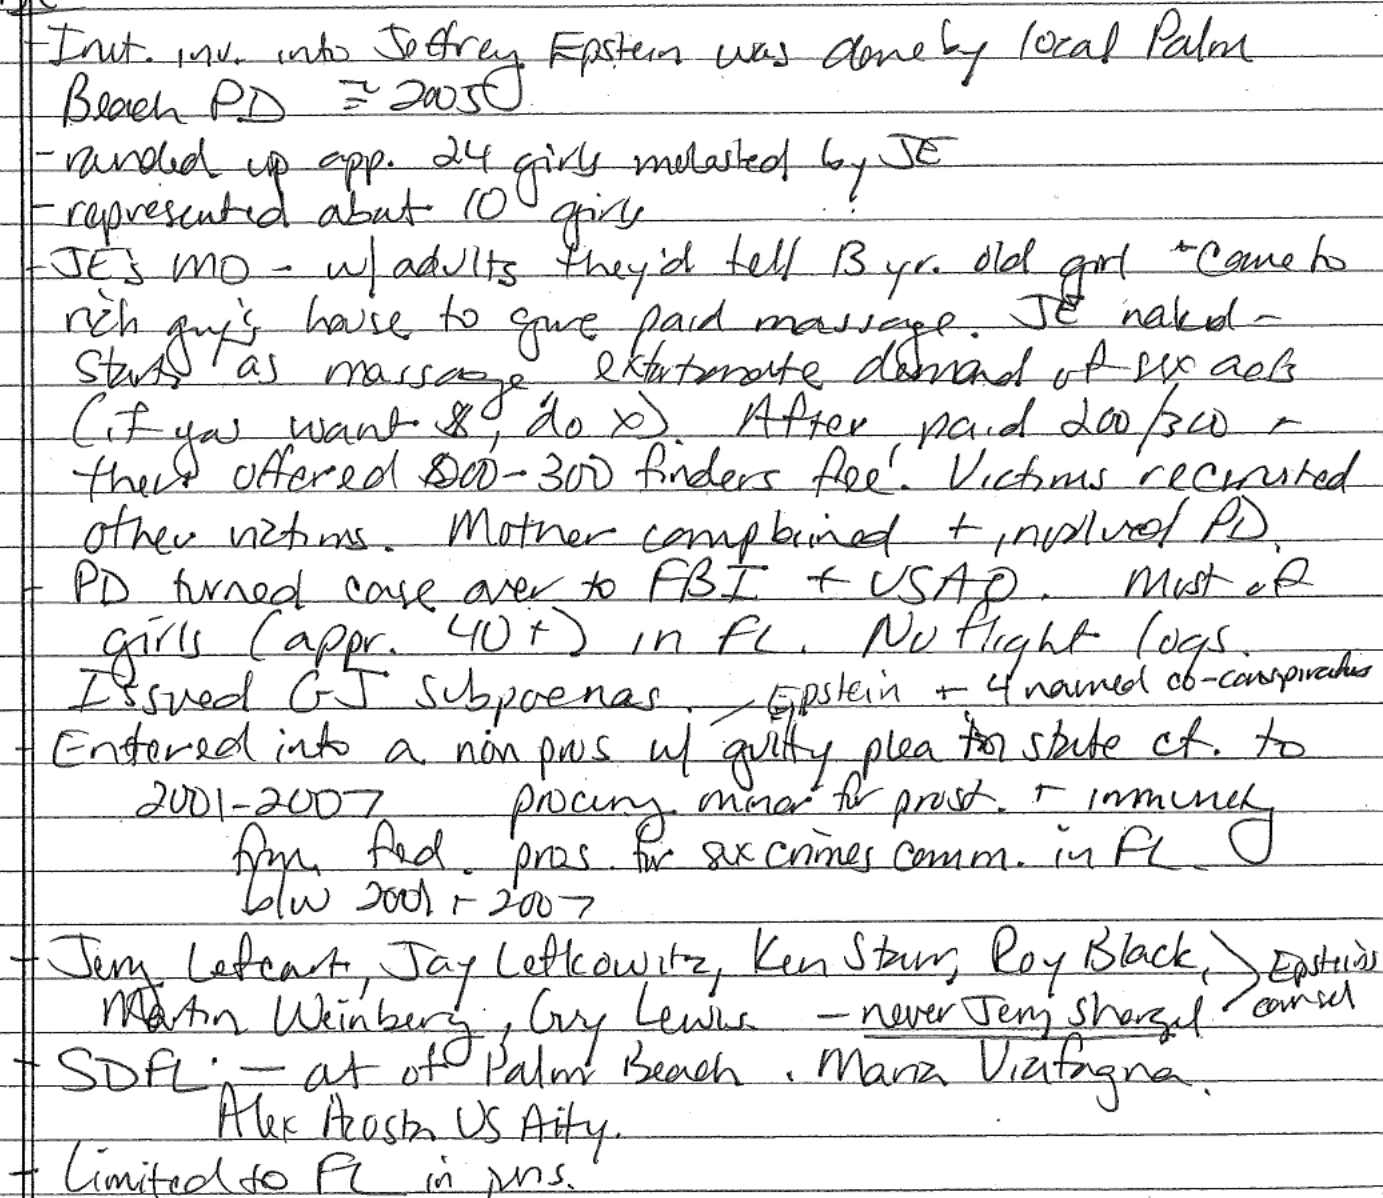 - Init. inv. into Jeffrey Epstein was done by local Palm
Beach PD ≅ 2005
- rounded up app. 24 girls molested by JE
- represented about 10 girls
- JE's MO - w/ adults they'd tell 13 yr. old girl "Come to
rich guy's house to give paid massage. JE naked -
Starts as massage, extortionate demand of sex acts
(if you want $, do x). After paid 200/300 -
then offered 200-300 finders fee. Victims recruited
other victims. Mother complained + involved PD.
- PD turned case over to FBI + USAO. Most of
girls (appr. 40+) in FL. No flight logs.
Issued GJ subpoenas. Epstein + 4 named co-conspirators
- Entered into a non pros w/ guilty plea in state ct. to
2001-2007 procuring minor for prost. + immunity
from fed. pros. for sex crimes comm. in FL
b/w 2001 + 2007
- Jerry Lefcart, Jay Lefkowitz, Ken Starr, Roy Black, > Epstein's
Martin Weinberg, Guy Lewis - never Jerry Shargel counsel
- SDFL - at of Palm Beach. Maria Viafagna.
Alex Acosta US Atty.
- Limited to FL in